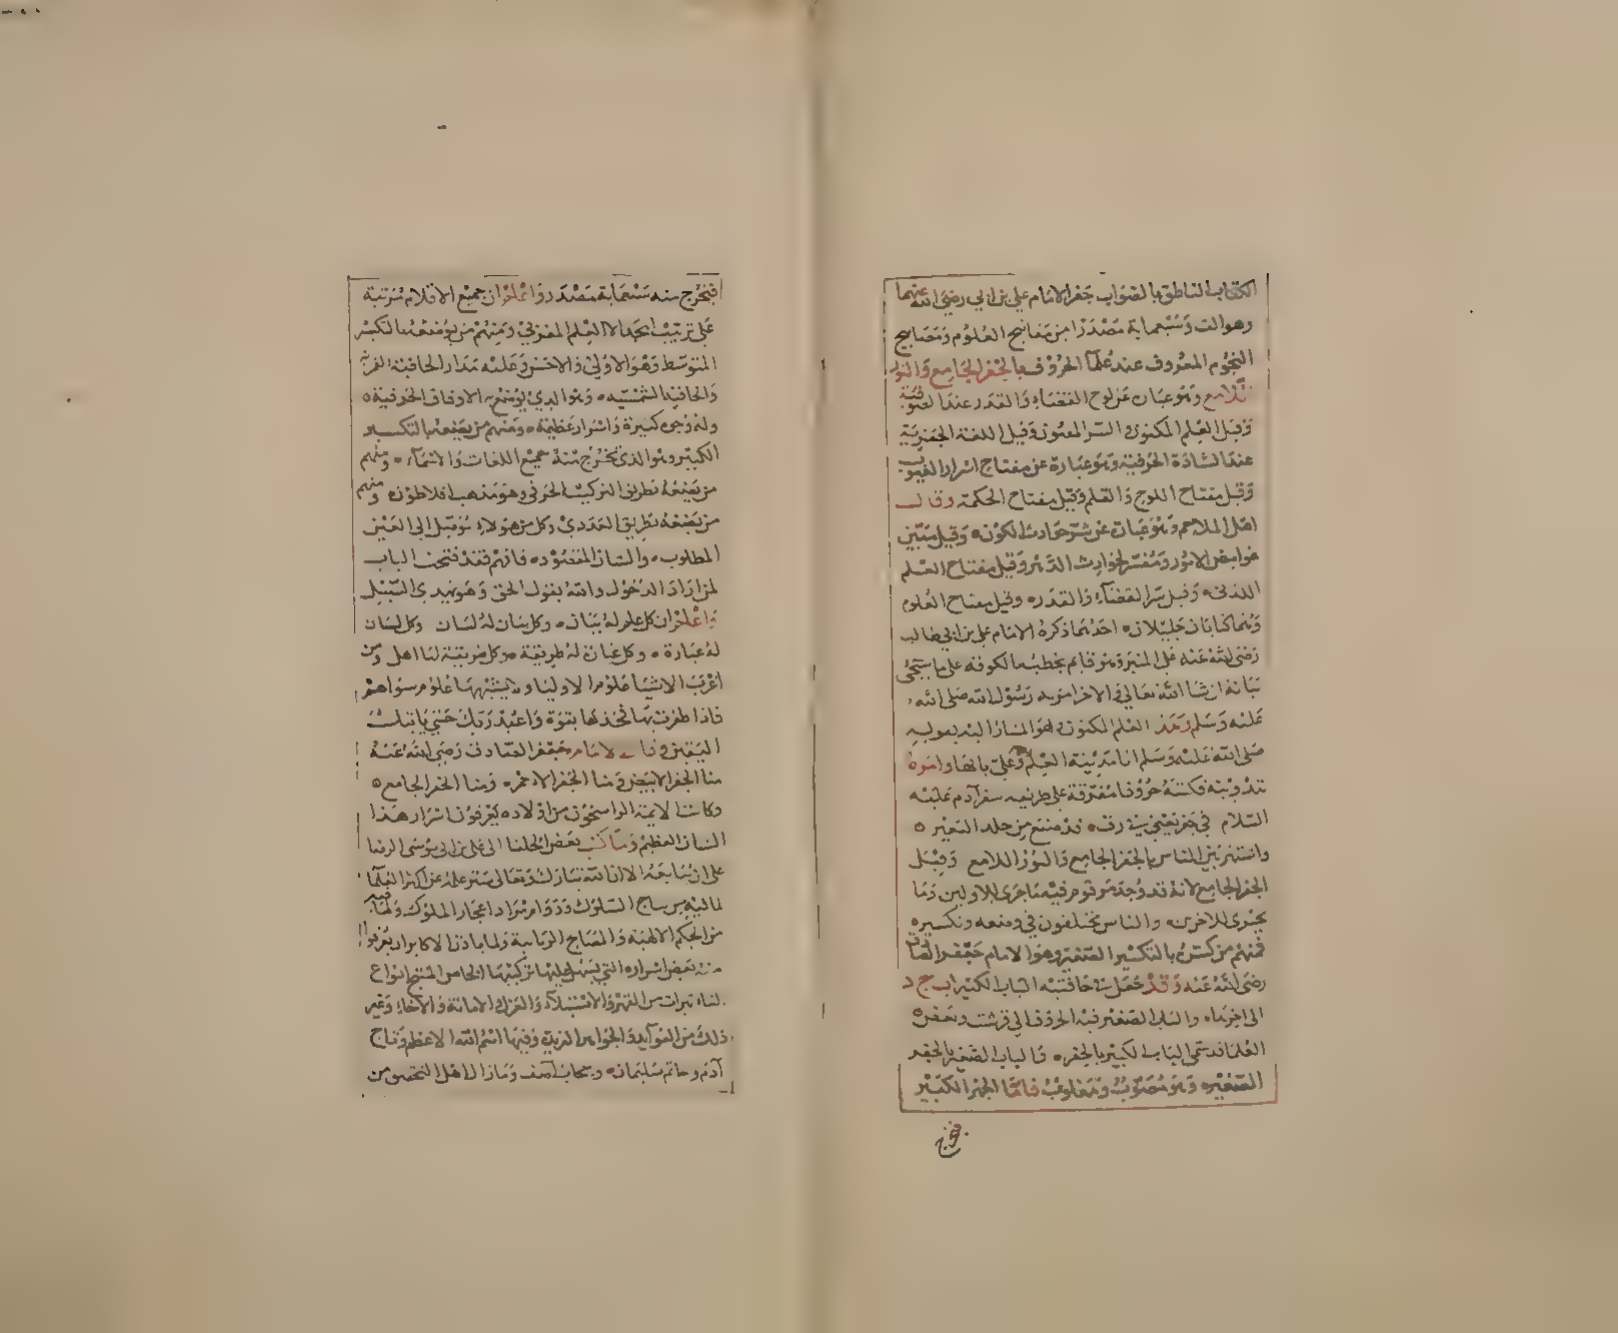 الكتاب الناطق بالصواب جفر الامام علي بن ابي رضي الله عنهما
وهو الف وسبعماية مصدرا من مفاتيح العلوم ومصابيح
النجوم المعروف عند علماء الحروف بالجفر الجامع والنور
اللامع وهو عبارة عن لوح القضاء والقدر عند الصوفية
وقيل العلم المكنون والسر المصون وقيل اللغة الجفرية
عند السادة الحرفية وهو عبارة عن مفتاح اسرار الغيوب
وقيل مفتاح اللوح والقلم وقيل مفتاح الحكمة وقالت
اهل الملاحم وهو عبارة عن سر حوادث الكون وقيل مبين
غوامض الامور ومفسر لحوادث الدهر وقيل مفتاح العلم
اللدني وقيل سر القضاء والقدر وقيل مفتاح العلوم
وهما كتابان جليلان احدهما ذكره الامام علي بن ابي طالب
رضي الله عنه على المنبر وهو قايم يخطب بالكوفة على ما سيجئ
بيانه ان شا الله تعالى والاخر رسول الله صلى الله
عليه وسلم العلم المكنون وهو المشار اليه بقوله
صلى الله عليه وسلم انا مدينة العلم وعلي بابها وامره
بتدوينه فكتبه حروفا مفرقة على طريقه سفر آدم عليه
السلام في جفر يعني في رق قد صنع من جلد البعير
واشتهر بين الناس بالجفر الجامع والنور اللامع وقيل
الجفر الجامع لانه قد وجد مرقوم فيه ما جرى للاولين وما
يجرى للاخرين والناس مختلفون في وضعه وتكسيره
فمنهم من كسره بالتكسير الصغير وهو الامام جعفر الصادق
رضي الله عنه وقد جعل في حافتيه الباب الكبير ا ب ج د
الى اخرها والباب الصغير فيه الحروف الى قرشت وبعض
العلما قد سمى الباب الكبير بالجفر والباب الصغير بالجفر
الصغير وهو مصوب ومقلوب فاما الجفر الكبير
فيخرج منه سبعماية مصدر واعلم ان جميع الاقلام مرتبة
على ترتيب ابجد الا القلم المغربي ومنهم من يضعه بالتكسير
المتوسط وهو الاولى والاحسن وعليه مدار الحافية القمرية
والحافية الشمسية وهو الذي يوضع به الاوفاق الحرفية
وله وجوه كبيرة واسرار عظيمة ومنهم من يضعه بالتكسير
الكبير وهو الذي يخرج منه جميع اللغات والاسماء ومنهم
من يضعه بطريق التركيب الحرفي وهو مذهب افلاطون ومنهم
من يضعه بطريق العددي وكل من هولاء توصل الى الغرض
المطلوب والشان المقصود فافهم فقد فتحت الباب
لمن اراد الدخول والله يقول الحق وهو يهدي السبيل
واعلم ان كل علم له بيان وكل بيان له لسان وكل لسان
له عبارة وكل عبارة له طريقة وكل طريقة لها اهل ومن
اغرب الاشيا علوم الاوليا ولا يشبهها علوم سواهم
فاذا ظفرت بها فخذها بقوة واعبد ربك حتى ياتيك
اليقين وقال الامام جعفر الصادق رضي الله عنه
منا الجفر الابيض ومنا الجفر الاحمر ومنا الجفر الجامع
وكانت الايمة الراسخون من اولاده يعرفون اسرار هذا
الشان العظيم وما كتب بعض الخلفا الى علي بن موسى الرضا
على ان يبايعه الا ان الله تبارك وتعالى ستر علمه عن اكثر العلما
لما فيه من السلوك الملوك ولما فيه
من الحكم الالهية والمصابيح الربانية ولما ماذنا الاكابر ان يعرفوا
منه بعض اسراره التي نبه عليها تركيبها الخاص المنتج انواع
من القهر والاستيلاء والعزل والامانة والاحياء وغير
ذلك من الفوايد والجواهر الفريدة وفيها اسم الله الاعظم وتاج
آدم وخاتم سليمان وحجاب آصف وماذا لاهل التحقيق من